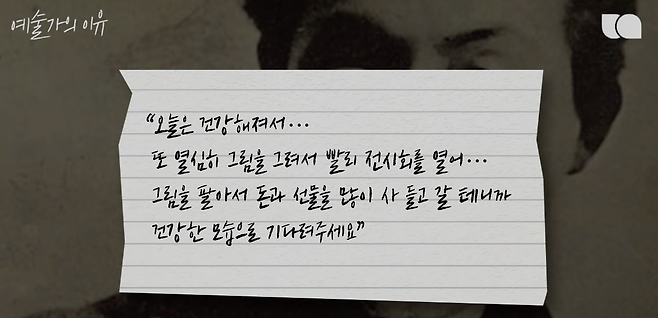 예술가의 이유
“오늘은 건강해져서...
또 열심히 그림을 그려서 빨리 전시회를 열어...
그림을 팔아서 돈과 선물을 많이 사 들고 갈 테니까
건강한 모습으로 기다려주세요”